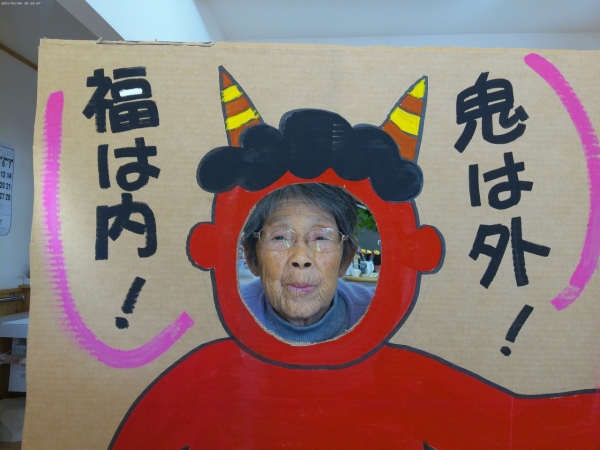 鬼は外!
福は内!